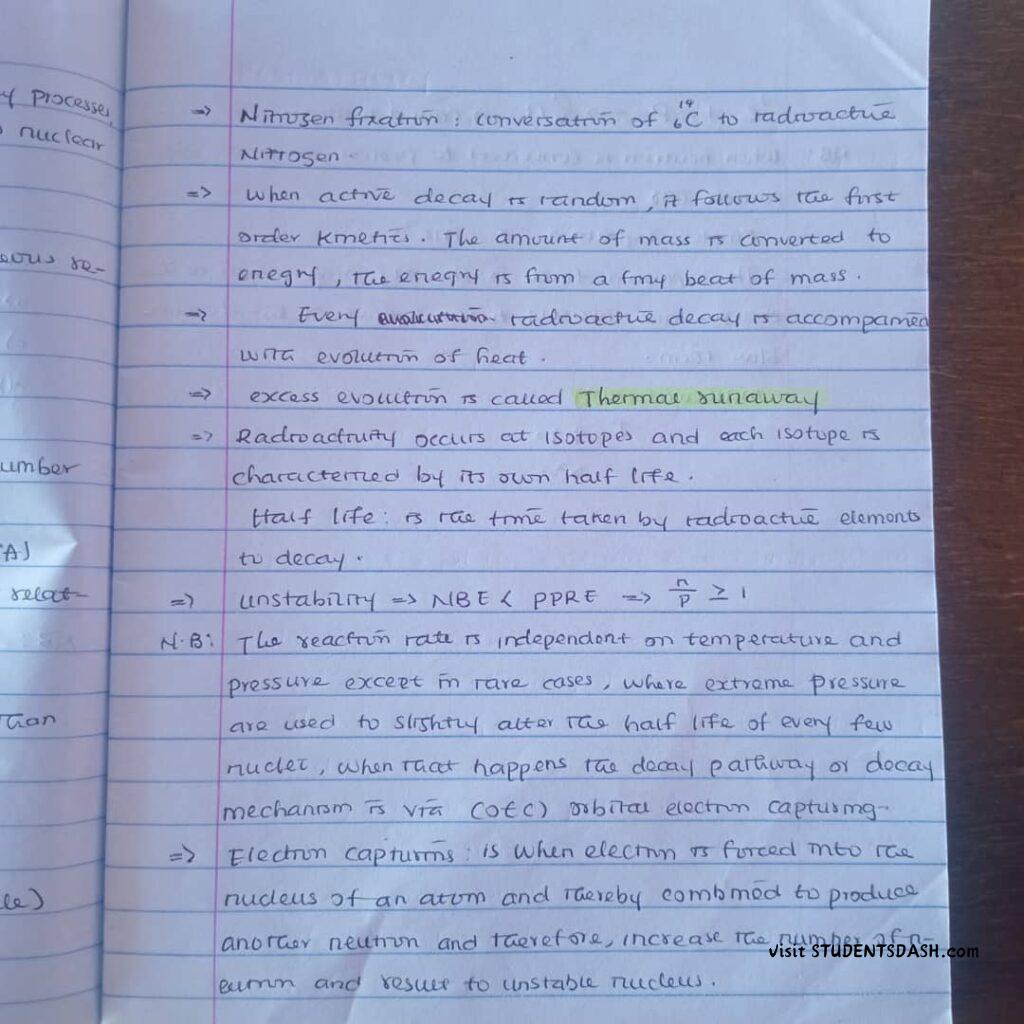 y processes,
nuclear
eous re-
umber
(A)
relat-
tian
le)
=> Nitrogen fixation : conversation of ¹⁴₆C to radioactive
Nitrogen.
=> When active decay is random, it follows the first
order kinetics. The amount of mass is converted to
enegry, the enegry is from a tiny beat of mass.
=> Every radioactive decay is accompanied
with evolution of heat.
=> excess evolution is called Thermal runaway
=> Radioactivity occurs at isotopes and each isotope is
characterized by its own half life.
Half life : is the time taken by radioactive elements
to decay.
=> unstability => NBE < PPRE => n/p ≥ 1
N.B: The reaction rate is independent on temperature and
pressure except in rare cases, where extreme pressure
are used to slightly alter the half life of every few
nuclei, when that happens the decay pathway or decay
mechanism is via (OEC) orbital electron capturing-
=> Electron capturing : is when electron is forced into the
nucleus of an atom and thereby combined to produce
another neutron and therefore, increase the number of n-
eutron and result to unstable nucleus.
visit STUDENTSDASH.com